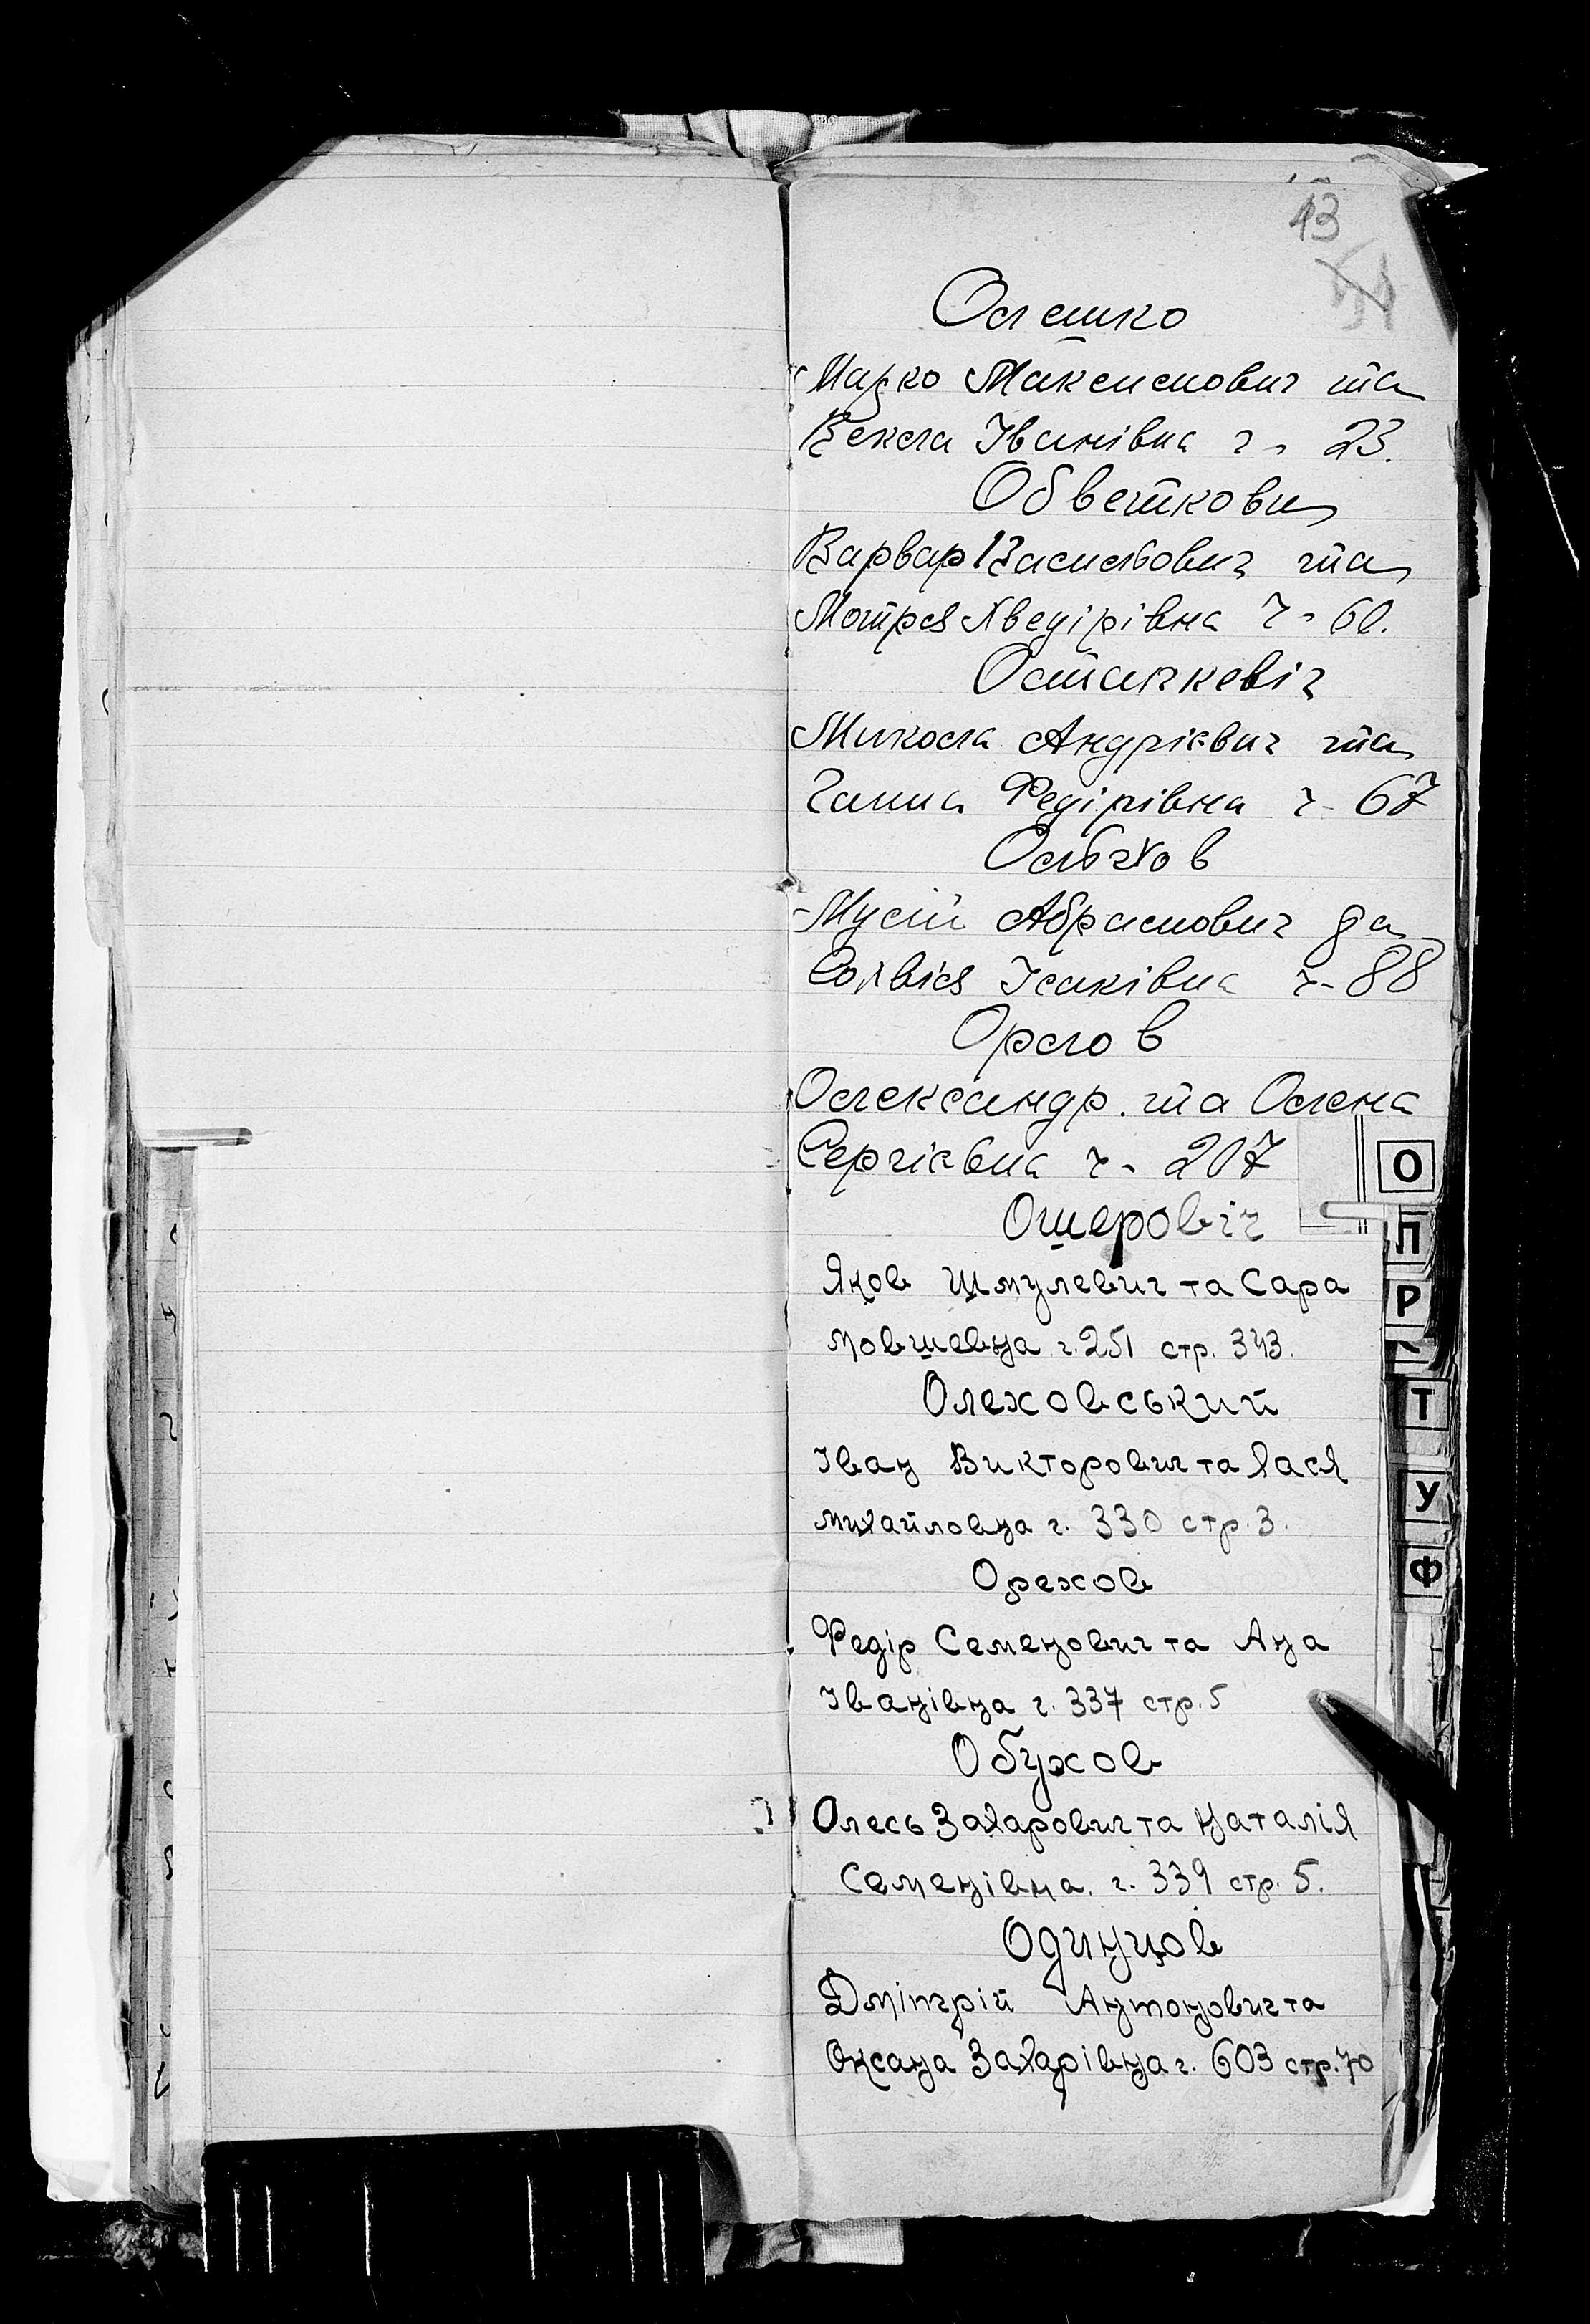 13
Олешко
Марко Максимович та
Векла Іванівна ч. 23.
Обветкови
Варвар Васильович та
Мотря Хведірівна ч. 60.
Осташкевіч
Микола Андрієвич та
Ганна Федірівна ч. 67
Ольхов
Мусій Абрамович да
Сольвія Ісаківна ч. 88
Орлов
Олександр. та Олена
Сергієвна ч. 207
Ошеровіч
Яков Шмулевич та Сара
Мовшевна ч. 251 стр. 343.
Олеховський
Іван Викторович та Яася
Михайловна ч. 330 стр. 3.
Орехов
Федір Семенович та Ана
Іванівна ч. 337 стр. 5
Обухов
Олесь Захарович та Наталія
Семенівна. ч. 339 стр. 5.
Одинцов
Дмітрій Антонович та
Оксана Захарівна ч. 603 стр. 70
О
П
Р
Т
У
Ф